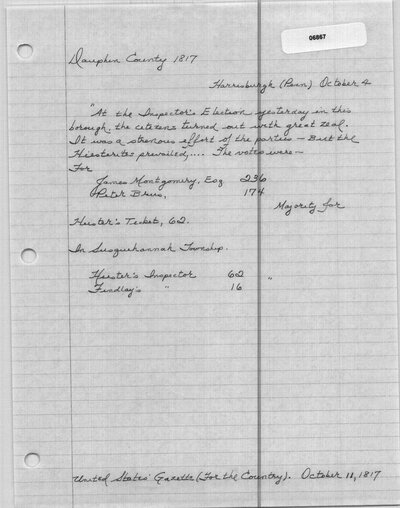 06867
Dauphin County 1817
Harrisburgh (Penn) October 4
"At the Inspector's Election yesterday in this
borough, the citizens turned out with great zeal.
It was a strenous effort of the parties — But the
Hiesterites prevailed,.... The votes were —
For
James Montgomery, Esq 236
Peter Brua, 174
Majority for
Hiester's Ticket, 62.
In Susquehannah Township.
Hiester's Inspector 62 "
Findlay's " 16
United States' Gazette (For the Country). October 11, 1817